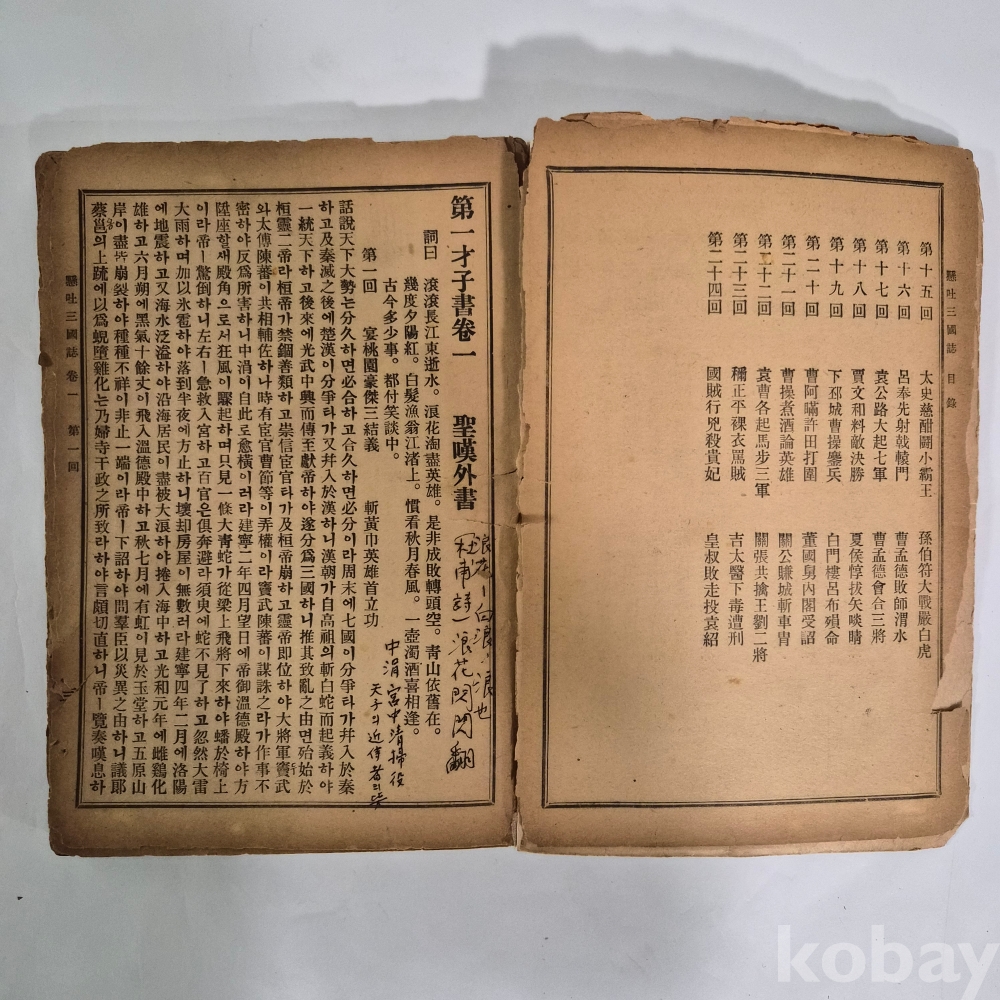 懸吐三國誌 目錄
第十五回 太史慈酣鬪小霸王 孫伯符大戰嚴白虎
第十六回 呂奉先射戟轅門 曹孟德敗師淯水
第十七回 袁公路大起七軍 曹孟德會合三將
第十八回 賈文和料敵決勝 夏侯惇拔矢啖睛
第十九回 下邳城曹操鏖兵 白門樓呂布殞命
第二十回 曹阿瞞許田打圍 董國舅內閣受詔
第二十一回 曹操煮酒論英雄 關公賺城斬車冑
第二十二回 袁曹各起馬步三軍 關張共擒王劉二將
第二十三回 禰正平裸衣罵賊 吉太醫下毒遭刑
第二十四回 國賊行兇殺貴妃 皇叔敗走投袁紹
浪花ㅣ白浪ㅣ浪也
杜甫詩ㅣ浪花閃閃翻
第一才子書卷一 聖嘆外書
詞曰 滾滾長江東逝水。浪花淘盡英雄。是非成敗轉頭空。靑山依舊在。
幾度夕陽紅。白髮漁翁江渚上。慣看秋月春風。一壺濁酒喜相逢。
古今多少事。都付笑談中。
中涓 宮中淸掃役
天子의 近侍者의 뜻
第一回 宴桃園豪傑三結義 斬黃巾英雄首立功
話說天下大勢는分久하면必合하고合久하면必分이라周末에七國이分爭타가幷入於秦
하고及秦滅之後에楚漢이分爭타가又幷入於漢하니漢朝가自高祖의斬白蛇而起義하야
一統天下하고後來에光武中興而傳至獻帝하야遂分爲三國하니推其致亂之由면殆始於
桓靈二帝라桓帝가禁錮善類하고崇信宦官타가及桓帝崩하고靈帝即位하야大將軍竇武
와太傅陳蕃이共相輔佐하나時有宦官曹節等이弄權이라竇武陳蕃이謀誅之라가作事不
密하야反爲所害하니中涓이自此로愈橫이러라建寧二年四月望日에帝御溫德殿하야方
陞座할새殿角으로서狂風이驟起하며只見一條大靑蛇가從梁上飛將下來하야蟠於椅上
이라帝ㅣ驚倒하니左右ㅣ急救入宮하고百官은俱奔避라須臾에蛇不見了하고忽然大雷
大雨하며加以氷雹하야落到半夜에方止하니壞却房屋이無數러라建寧四年二月에洛陽
에地震하고又海水泛溢하야沿海居民이盡被大浪하야捲入海中하고光和元年에雌鷄化
雄하고六月朔에黑氣十餘丈이飛入溫德殿中하고秋七月에有虹이見於玉堂하고五原山
岸이盡皆崩裂하야種種不祥이非止一端이라帝ㅣ下詔하야問羣臣以災異之由하니議郞
蔡邕의上疏에以爲蜺墮雞化는乃婦寺干政之所致라하야言頗切直하니帝ㅣ覽奏嘆息하
懸吐三國誌 卷一 第一回
kobay